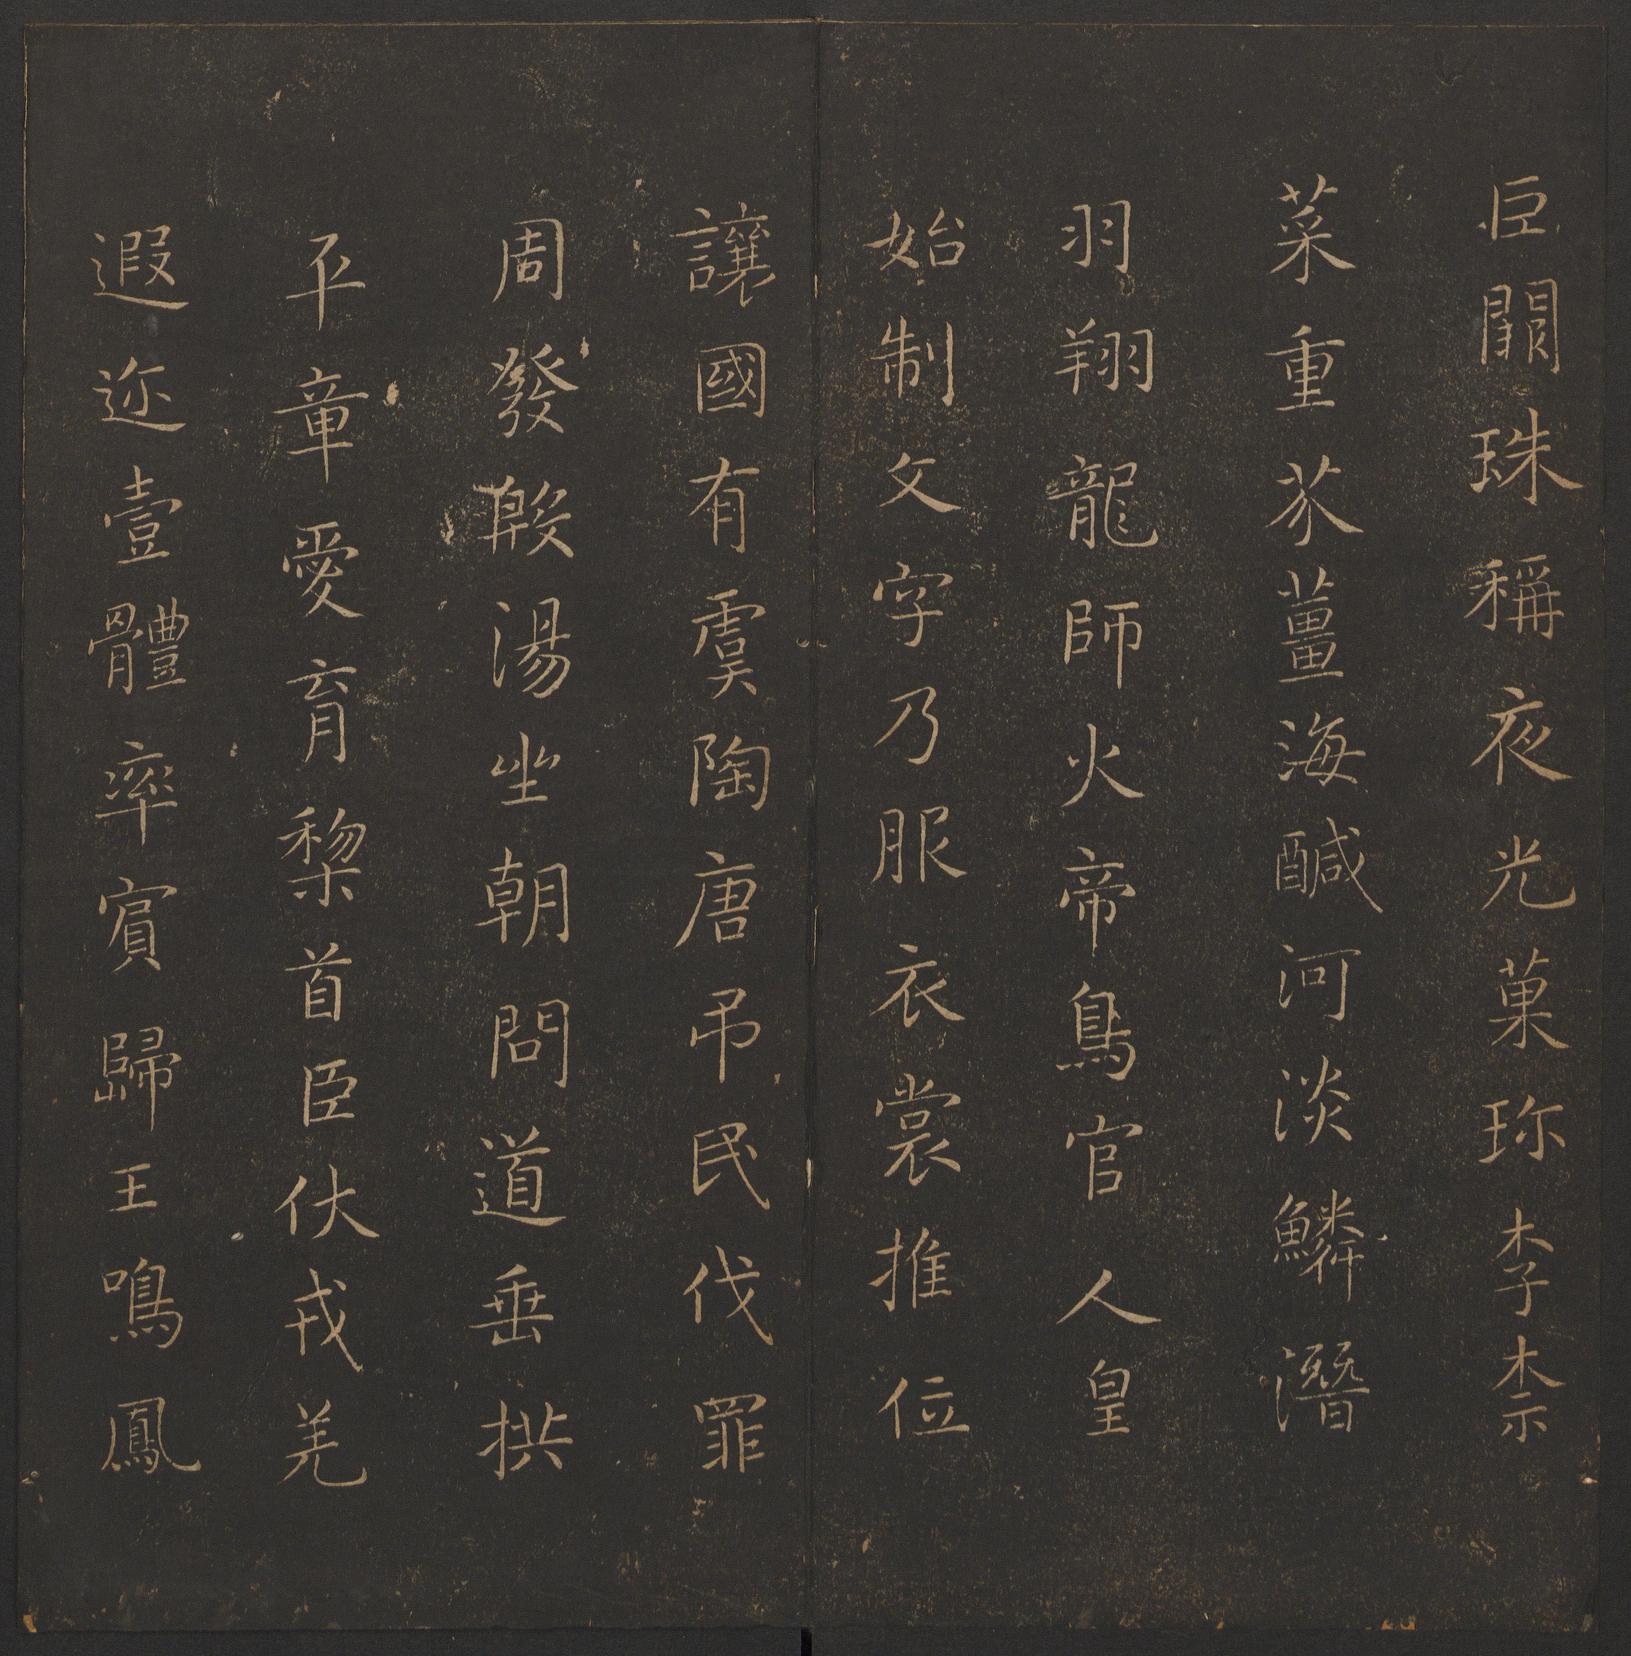 巨闕珠稱夜光菓珎李柰
菜重芥薑海醎河淡鱗潛
羽翔龍師火帝鳥官人皇
始制文字乃服衣裳推位
讓國有虞陶唐吊民伐罪
周發殷湯坐朝問道垂拱
平章愛育棃首臣伏戎羌
遐迩壹體率賓歸王鳴鳳